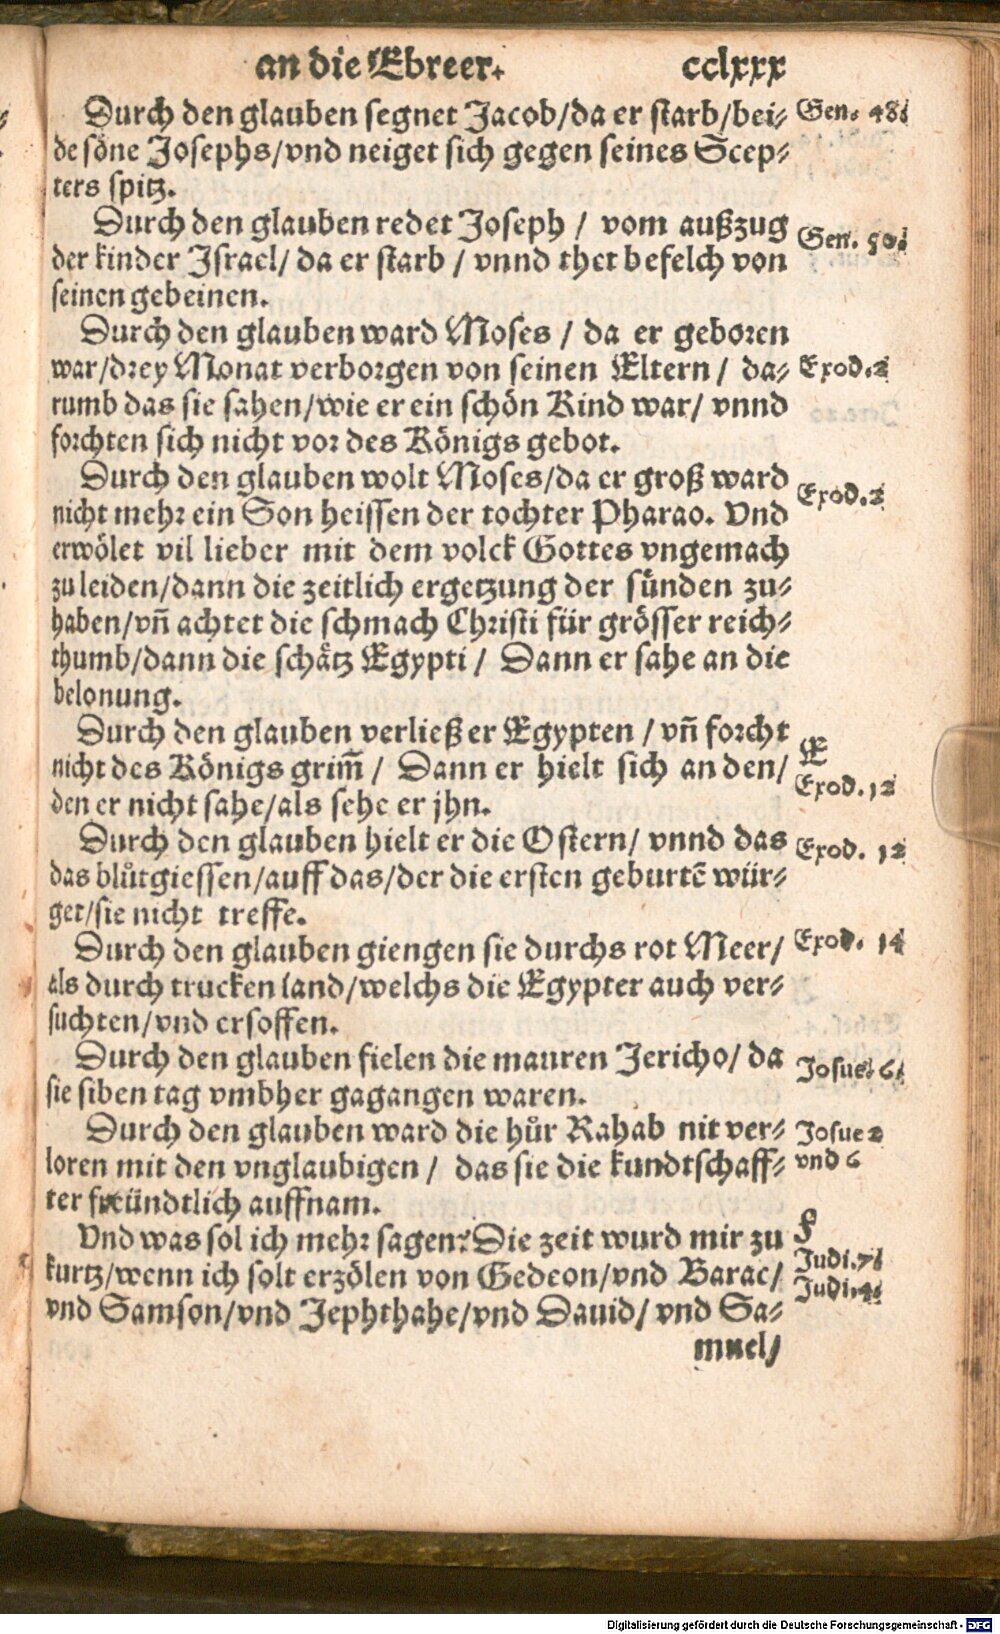 an die Ebreer. cclxxx
Durch den glauben segnet Jacob/da er starb/bei⸗ Gen. 48.
de söne Josephs/vnd neiget sich gegen seines Scep⸗
ters spitz.
Durch den glauben redet Joseph / vom außzug
der kinder Jsrael/ da er starb / vnnd thet befelch von Gen. 50.
seinen gebeinen.
Durch den glauben ward Moses / da er geboren
war/drey Monat verborgen von seinen Eltern / da⸗ Exod.2
rumb das sie sahen/wie er ein schön Kind war/ vnnd
forchten sich nicht vor des Königs gebot.
Durch den glauben wolt Moses/da er groß ward Exod.2
nicht mehr ein Son heissen der tochter Pharao. Vnd
erwölet vil lieber mit dem volck Gottes vngemach
zu leiden/dann die zeitlich ergetzung der sünden zu⸗
haben/vñ achtet die schmach Christi für grösser reich⸗
thumb/dann die schätz Egypti / Dann er sahe an die
belonung.
Durch den glauben verließ er Egypten / vñ forcht E
nicht des Königs grim̃ / Dann er hielt sich an den/ Exod.12
den er nicht sahe/als sehe er jhn.
Durch den glauben hielt er die Ostern/ vnnd das Exod. 12
das blůtgiessen/auff das/der die ersten geburtẽ wür⸗
get/sie nicht treffe.
Durch den glauben giengen sie durchs rot Meer/ Exod. 14
als durch trucken land/welchs die Egypter auch ver⸗
suchten/vnd ersoffen.
Durch den glauben fielen die mauren Jericho/ da Josue. 6.
sie siben tag vmbher gagangen waren.
Durch den glauben ward die hůr Rahab nit ver⸗ Josue 2
loren mit den vnglaubigen / das sie die kundtschaff⸗ vnd 6
ter freündtlich auffnam.
Vnd was sol ich mehr sagen? Die zeit wurd mir zu F
kurtz/wenn ich solt erzölen von Gedeon/vnd Barac/ Judi.7.
vnd Samson/vnd Jephthahe/vnd Dauid/ vnd Sa⸗ Judi.4.
muel/
Digitalisierung gefördert durch die Deutsche Forschungsgemeinschaft - DFG